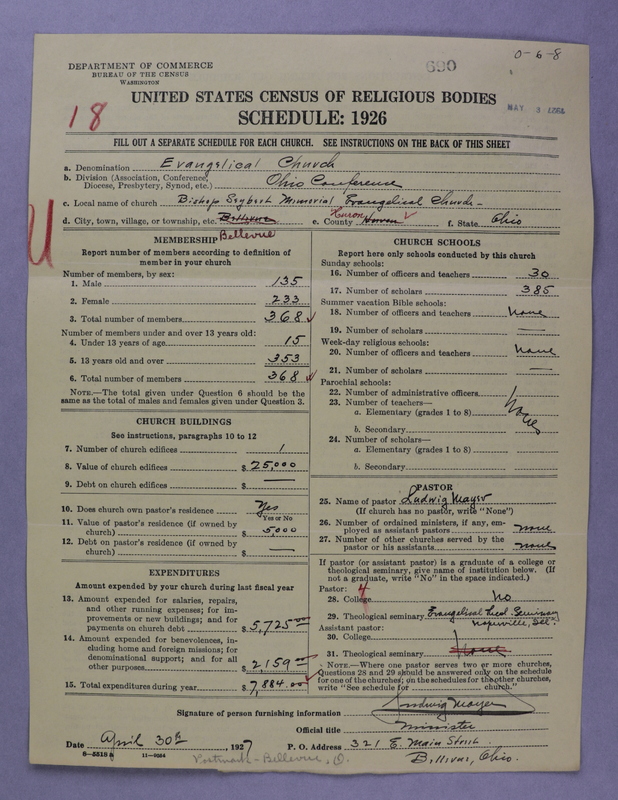 0-6-8
DEPARTMENT OF COMMERCE
BUREAU OF THE CENSUS
WASHINGTON
690
18
UNITED STATES CENSUS OF RELIGIOUS BODIES
MAY 3
SCHEDULE: 1926
FILL OUT A SEPARATE SCHEDULE FOR EACH CHURCH. SEE INSTRUCTIONS ON THE BACK OF THIS SHEET
a. Denomination Evangelical Church
b. Division (Association, Conference, Diocese, Presbytery, Synod, etc.) Ohio Conference
c. Local name of church Bishop Seybert Memorial Evangelical Church
d. City, town, village, or township, etc. Bellevue e. County Huron f. State Ohio
Bellevue
U
MEMBERSHIP
Report number of members according to definition of
member in your church
Number of members, by sex:
1. Male 135
2. Female 233
3. Total number of members 368
Number of members under and over 13 years old:
4. Under 13 years of age 15
5. 13 years old and over 353
6. Total number of members 368
NOTE.—The total given under Question 6 should be
same as the total of males and females given under Question 3.
CHURCH BUILDINGS
See instructions, paragraphs 10 to 12
7. Number of church edifices 1
8. Value of church edifices $ 25,000
9. Debt on church edifices $ —
10. Does church own pastor's residence? Yes
Yes or No
11. Value of pastor's residence (if owned by
church) $ 5,000
12. Debt on pastor's residence (if owned by
church) $ —
EXPENDITURES
Amount expended by your church during last fiscal year
13. Amount expended for salaries, repairs,
and other running expenses; for im-
provements or new buildings; and for
payments on church debt $ 5,725.00
14. Amount expended for benevolences, in-
cluding home and foreign missions; for
denominational support; and for all
other purposes $ 2159.00
15. Total expenditures during year $ 7,884.00
CHURCH SCHOOLS
Report here only schools conducted by this church
Sunday schools:
16. Number of officers and teachers 30
17. Number of scholars 385
Summer vacation Bible schools:
18. Number of officers and teachers None
19. Number of scholars —
Week-day religious schools:
20. Number of officers and teachers None
21. Number of scholars —
Parochial schools:
22. Number of administrative officers
23. Number of teachers—
a. Elementary (grades 1 to 8) None
b. Secondary
24. Number of scholars—
a. Elementary (grades 1 to 8)
b. Secondary
PASTOR
25. Name of pastor Ludwig Mayer
(If church has no pastor, write "None")
26. Number of ordained ministers, if any, em-
ployed as assistant pastors none
27. Number of other churches served by the
pastor or his assistants none
If pastor (or assistant pastor) is a graduate of a college or
theological seminary, give name of institution below. (If
not a graduate, write "No" in the space indicated.)
Pastor: 4
28. College No
29. Theological seminary Evangelical Theol. Seminary
Naperville, Ill.
Assistant pastor:
30. College
31. Theological seminary None
NOTE.—Where one pastor serves two or more churches,
Questions 28 and 29 should be answered only on the schedule
for one of the churches; on the schedules for the other churches,
write "See schedule for church."
Signature of person furnishing information Ludwig Mayer
Official title Minister
Date April 30th 1927 P. O. Address 321 E. Main Street
8—5518a 11—9034 Bellevue, Ohio.
Postmark - Bellevue, O.